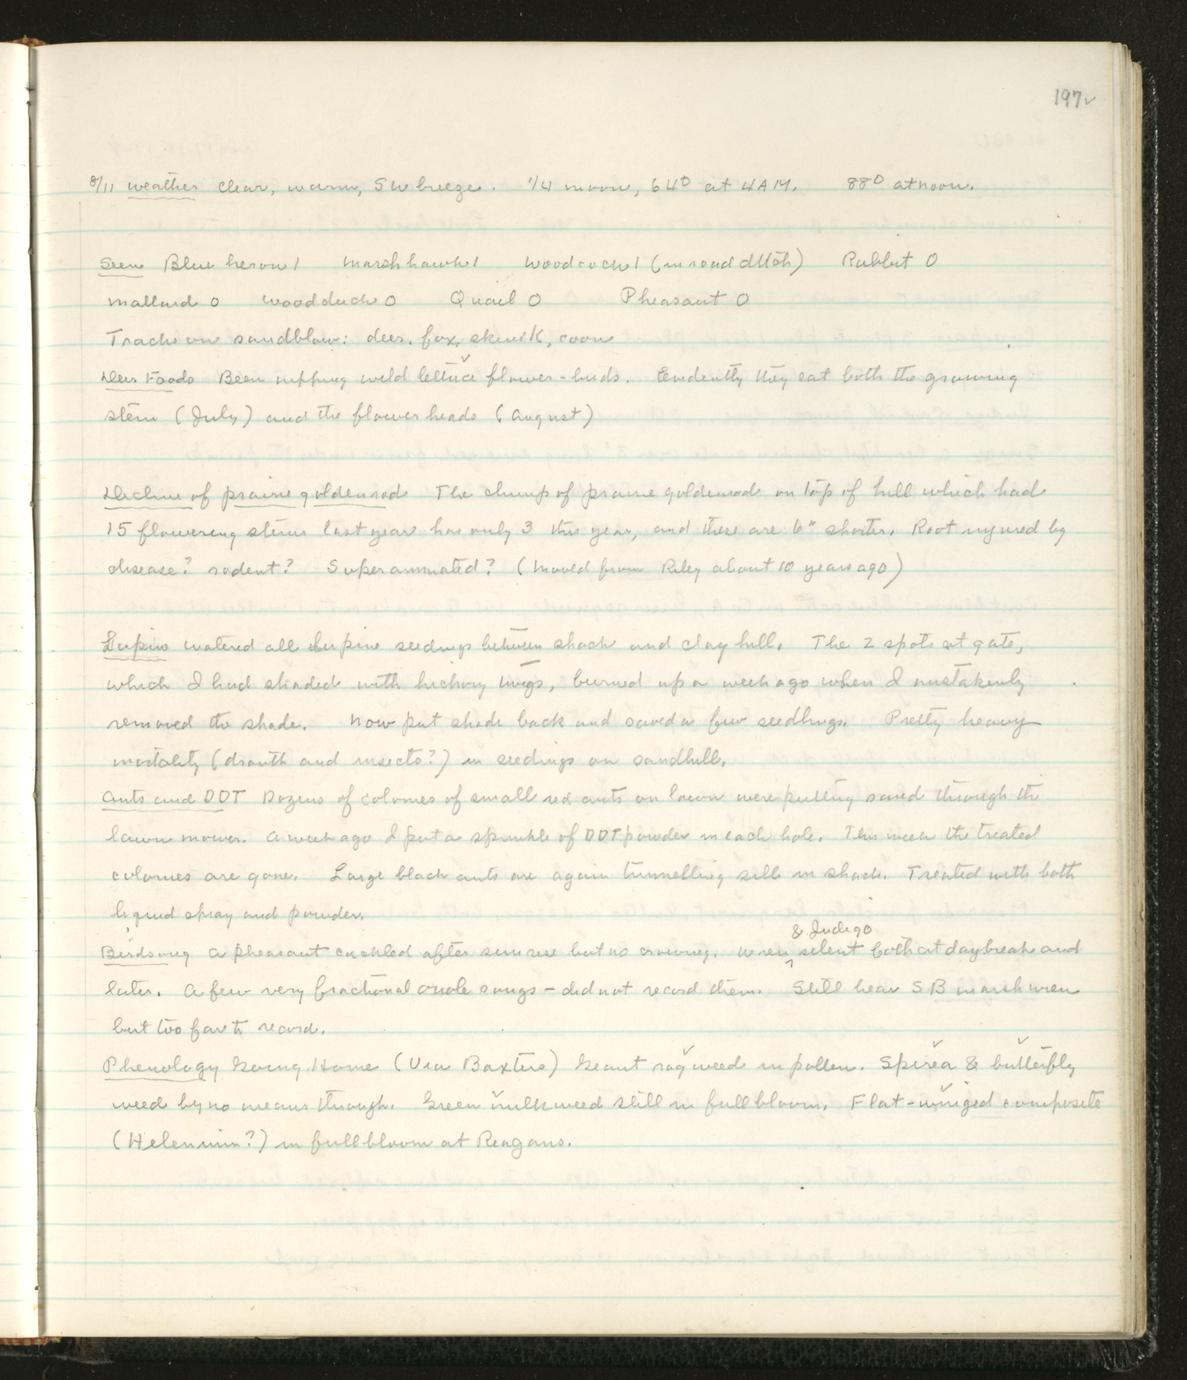 197✓
8/11 weather clear, warm, SW breeze. 1/4 moon, 64° at 4 AM. 88° at noon.
Seen Blue heron 1 Marsh hawk 1 Woodcock 1 (in road ditch) Rabbit 0
Mallard 0 Woodduck 0 Quail 0 Pheasant 0
Tracks on sandblow: deer, fox, skunk, coon
Deer Foods Been nipping wild lettuce flower-buds. Evidently they eat both the growing
stem (July) and the flower heads (August)
Decline of prairie goldenrod The clump of prairie goldenrod on top of hill which had
15 flowering stems last year has only 3 this year, and these are 6" shorter. Root injured by
disease? rodent? Superannuated? (Moved from Riley about 10 years ago)
Lupine watered all lupine seedings between shack and clay hill. The 2 spots at gate,
which I had shaded with hickory twigs, burned up a week ago when I mistakenly
removed the shade. Now put shade back and saved a few seedlings. Pretty heavy
mortality (drouth and insects?) in seedings on sandhill.
Ants and DDT Dozens of colonies of small red ants on lawn were putting sand through the
lawn mower. A week ago I put a sprinkle of DDT powder in each hole. This week the treated
colonies are gone. Large black ants are again tunnelling sill in shack. Treated with both
liquid spray and powder.
& Indigo
Birdsong A pheasant cackled after sunrise but no crowing. Wren silent both at daybreak and
later. A few very fractional oriole songs - did not record them. Still hear SB marsh wren
but too far to record.
Phenology Going Home (Via Baxters) Giant ragweed in pollen. Spirea & butterfly
weed by no means through. Green milkweed still in full bloom. Flat-winged composite
(Helenium?) in full bloom at Reagans.